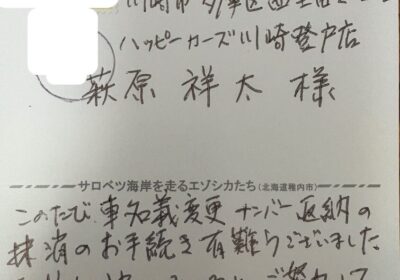 川崎市多摩区
ハッピーカーズ川崎登戸店
萩原祥太様
サロベツ海岸を走るエゾシカたち(北海道稚内市)
このたび、車名義変更ナンバー返納の
抹消のお手続き有難うございました